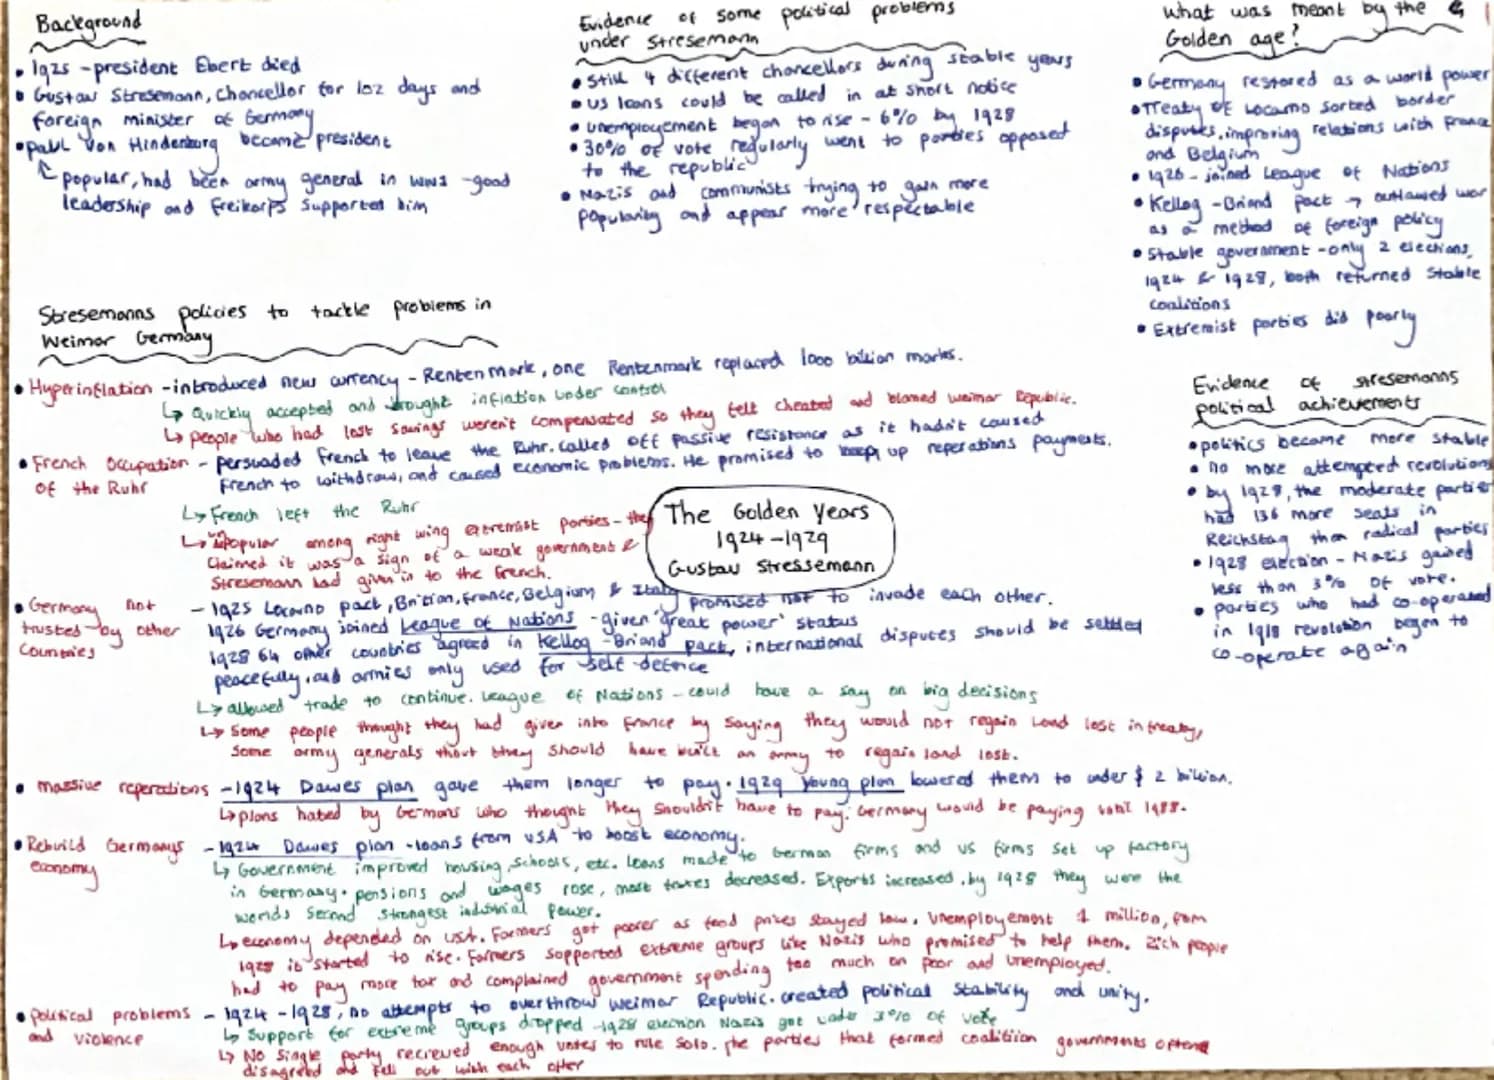 Background
• 1925 - president Ebert died
• Gustav Stresemann, Chancellor for 102 days and
foreign minister of Germany
• Paul Von Hindenburg became president
popular, had been army general in WW1 - good
leadership and Freikorps supported him
Evidence of some political problems
under Stresemann
• Still 4 different chancellors during stable years
• US loans could be called in at short notice
• unemployement began to rise - 6% by 1928
• 30% of vote regularly went to parties opposed
to the republic
• Nazis and communists trying to gain more
popularity and appear more respectable
What was meant by the G
Golden age?
• Germany restored as a world power
• Treaty of Locarno sorted border
disputes, improving relations with France
and Belgium
• 1926 - joined League of Nations
• Kellog - Briand pact → outlawed war
as a method of foreign policy
• Stable government - only 2 elections,
1924 & 1928, both returned stable
coalitions
• Extremist parties did poorly
Stresemanns policies to tackle problems in
Weimar Germany
• Hyperinflation - introduced new currency - Rentenmark, one Rentenmark replaced 1000 billion marks.
↳ Quickly accepted and brought inflation under control
↳ people who had lost savings weren't compensated so they felt cheated and blamed weimar Republic.
• French Occupation - persuaded French to leave the Ruhr. called off passive resistance as it hadn't caused
of the Ruhr French to withdraw, and caused economic problems. He promised to keep up reperations payments.
↳ French left the Ruhr
↳ unpopular among right wing extremist parties - they
claimed it was a sign of a weak government &
Stresemann had given in to the French.
The Golden Years
1924 - 1929
Gustav Stressemann
• Germany not - 1925 Locarno pact, Britian, France, Belgium & Italy promised not to invade each other.
trusted by other 1926 Germany joined League of Nations - given 'great power' status
countries 1928 64 other countries agreed in Kellog - Briand pact, international disputes should be settled
peacefully, and armies only used for self-defence
↳ allowed trade to continue. League of Nations - could have a say on big decisions
↳ Some people thought they had given into France by saying they would not regain land lost in treaty,
some army generals thout they should have built an army to regain land lost.
• massive reperations - 1924 Dawes plan gave them longer to pay. 1929 Young plan lowered them to under $ 2 billion.
↳ plans hated by Germans who thought they shouldn't have to pay. Germany would be paying until 1988.
• Rebuild Germanys - 1924 Dawes plan - loans from USA to boost economy.
economy ↳ Government improved housing, schools, etc. loans made to German firms and US firms set up factory
in Germany. pensions and wages rose, most taxes decreased. Exports increased, by 1928 they were the
worlds second strongest industrial power.
↳ economy depended on USA. Farmers got poorer as food prices stayed low. Unemployement 1 million, from
1928 it started to rise. Farmers supported extreme groups like Nazis who promised to help them. Rich people
had to pay more tax and complained government spending too much on poor and unemployed.
• political problems - 1924 - 1928, no attempts to overthrow weimar Republic. created political stability and unity.
and violence ↳ Support for extreme groups dropped - 1928 election Nazis got under 3% of vote
↳ No single party recieved enough votes to rule solo. the parties that formed coalition governments often
disagreed and fell out with each other
Evidence of stresemanns
political achievements
• politics become more stable
• no more attempted revolutions
• by 1928, the moderate parties
had 136 more seats in
Reichstag than radical parties
• 1928 election - Nazis gained
less than 3% of vote.
• parties who had co-operated
in 1918 revolution began to
co-operate again